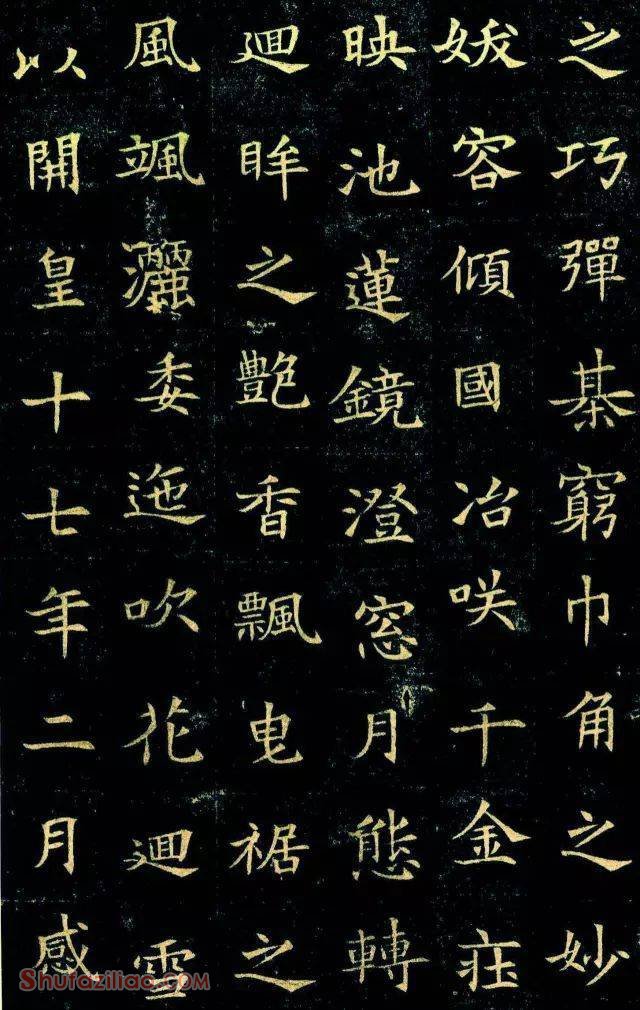 之巧彈棊窮巾角之妙
妖容傾國冶咲千金莊
映池蓮鏡澄窓月態轉
迴眸之艷香飄曳裾之
風颯灑委迤吹花迴雪
以開皇十七年二月感
Shufaziliao.com